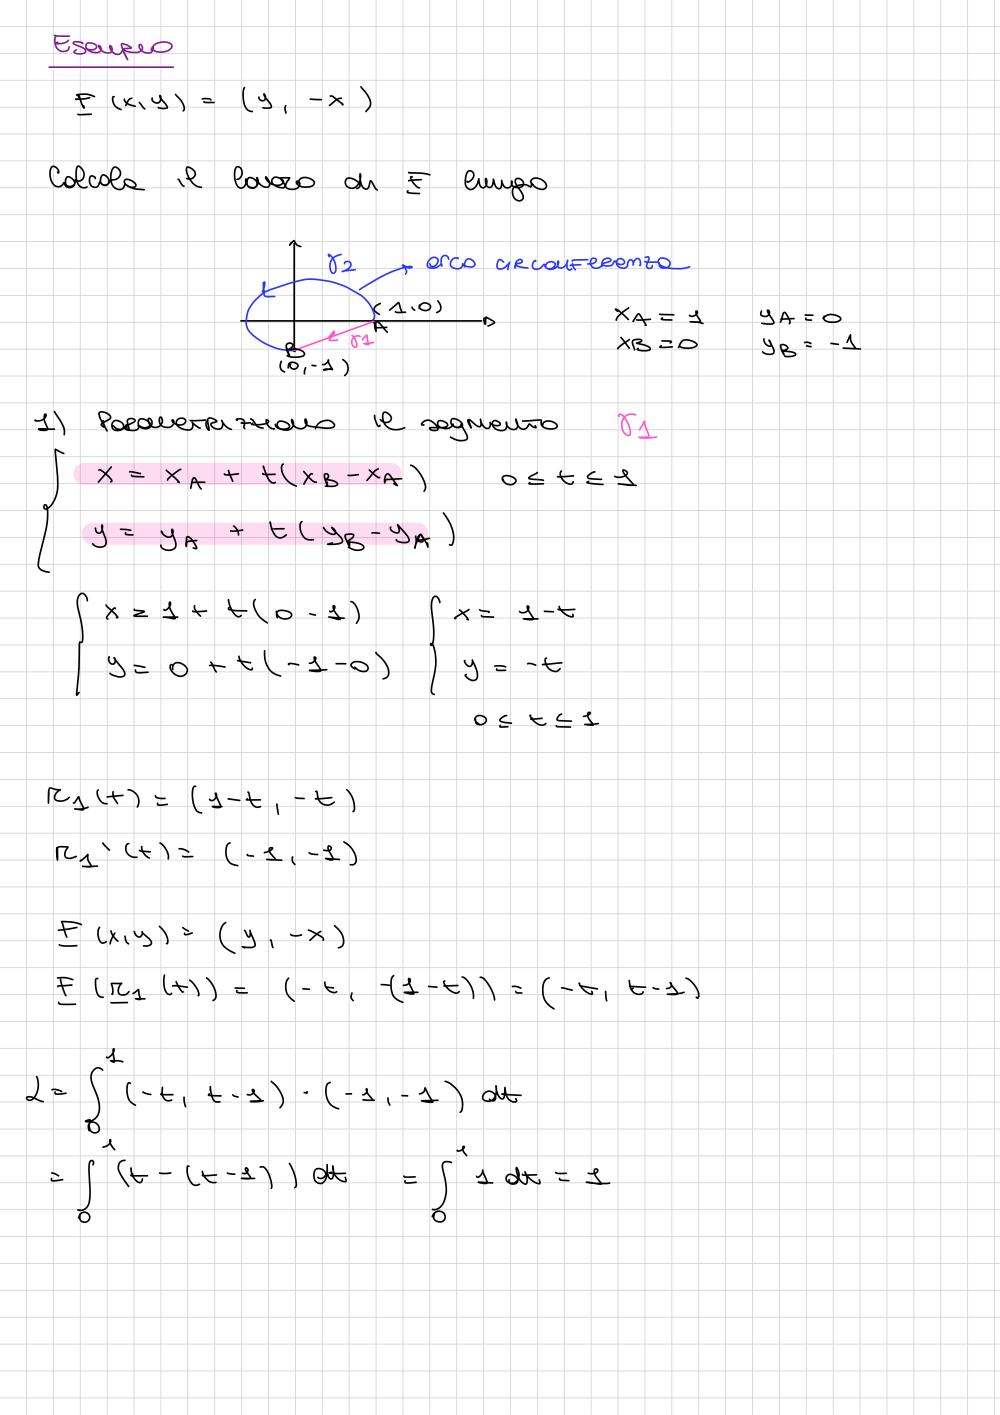 Esempio
F (x,y) = (y, -x)
Calcola il lavoro di F lungo
γ2 → arco circonferenza
(1,0)
A
γ1
B
(0,-1)
xA = 1 yA = 0
xB = 0 yB = -1
1) Parametrizziamo il segmento γ1
x = xA + t(xB - xA) 0 ≤ t ≤ 1
y = yA + t(yB - yA)
x = 1 + t(0 - 1) x = 1-t
y = 0 + t(-1-0) y = -t
0 ≤ t ≤ 1
r1(t) = (1-t, -t)
r1'(t) = (-1, -1)
F (x,y) = (y, -x)
F (r1 (t)) = (-t, -(1-t)) = (-t, t-1)
L = ∫₀¹ (-t, t-1) · (-1, -1) dt
= ∫₀¹ (t - (t-1)) dt = ∫₀¹ 1 dt = 1